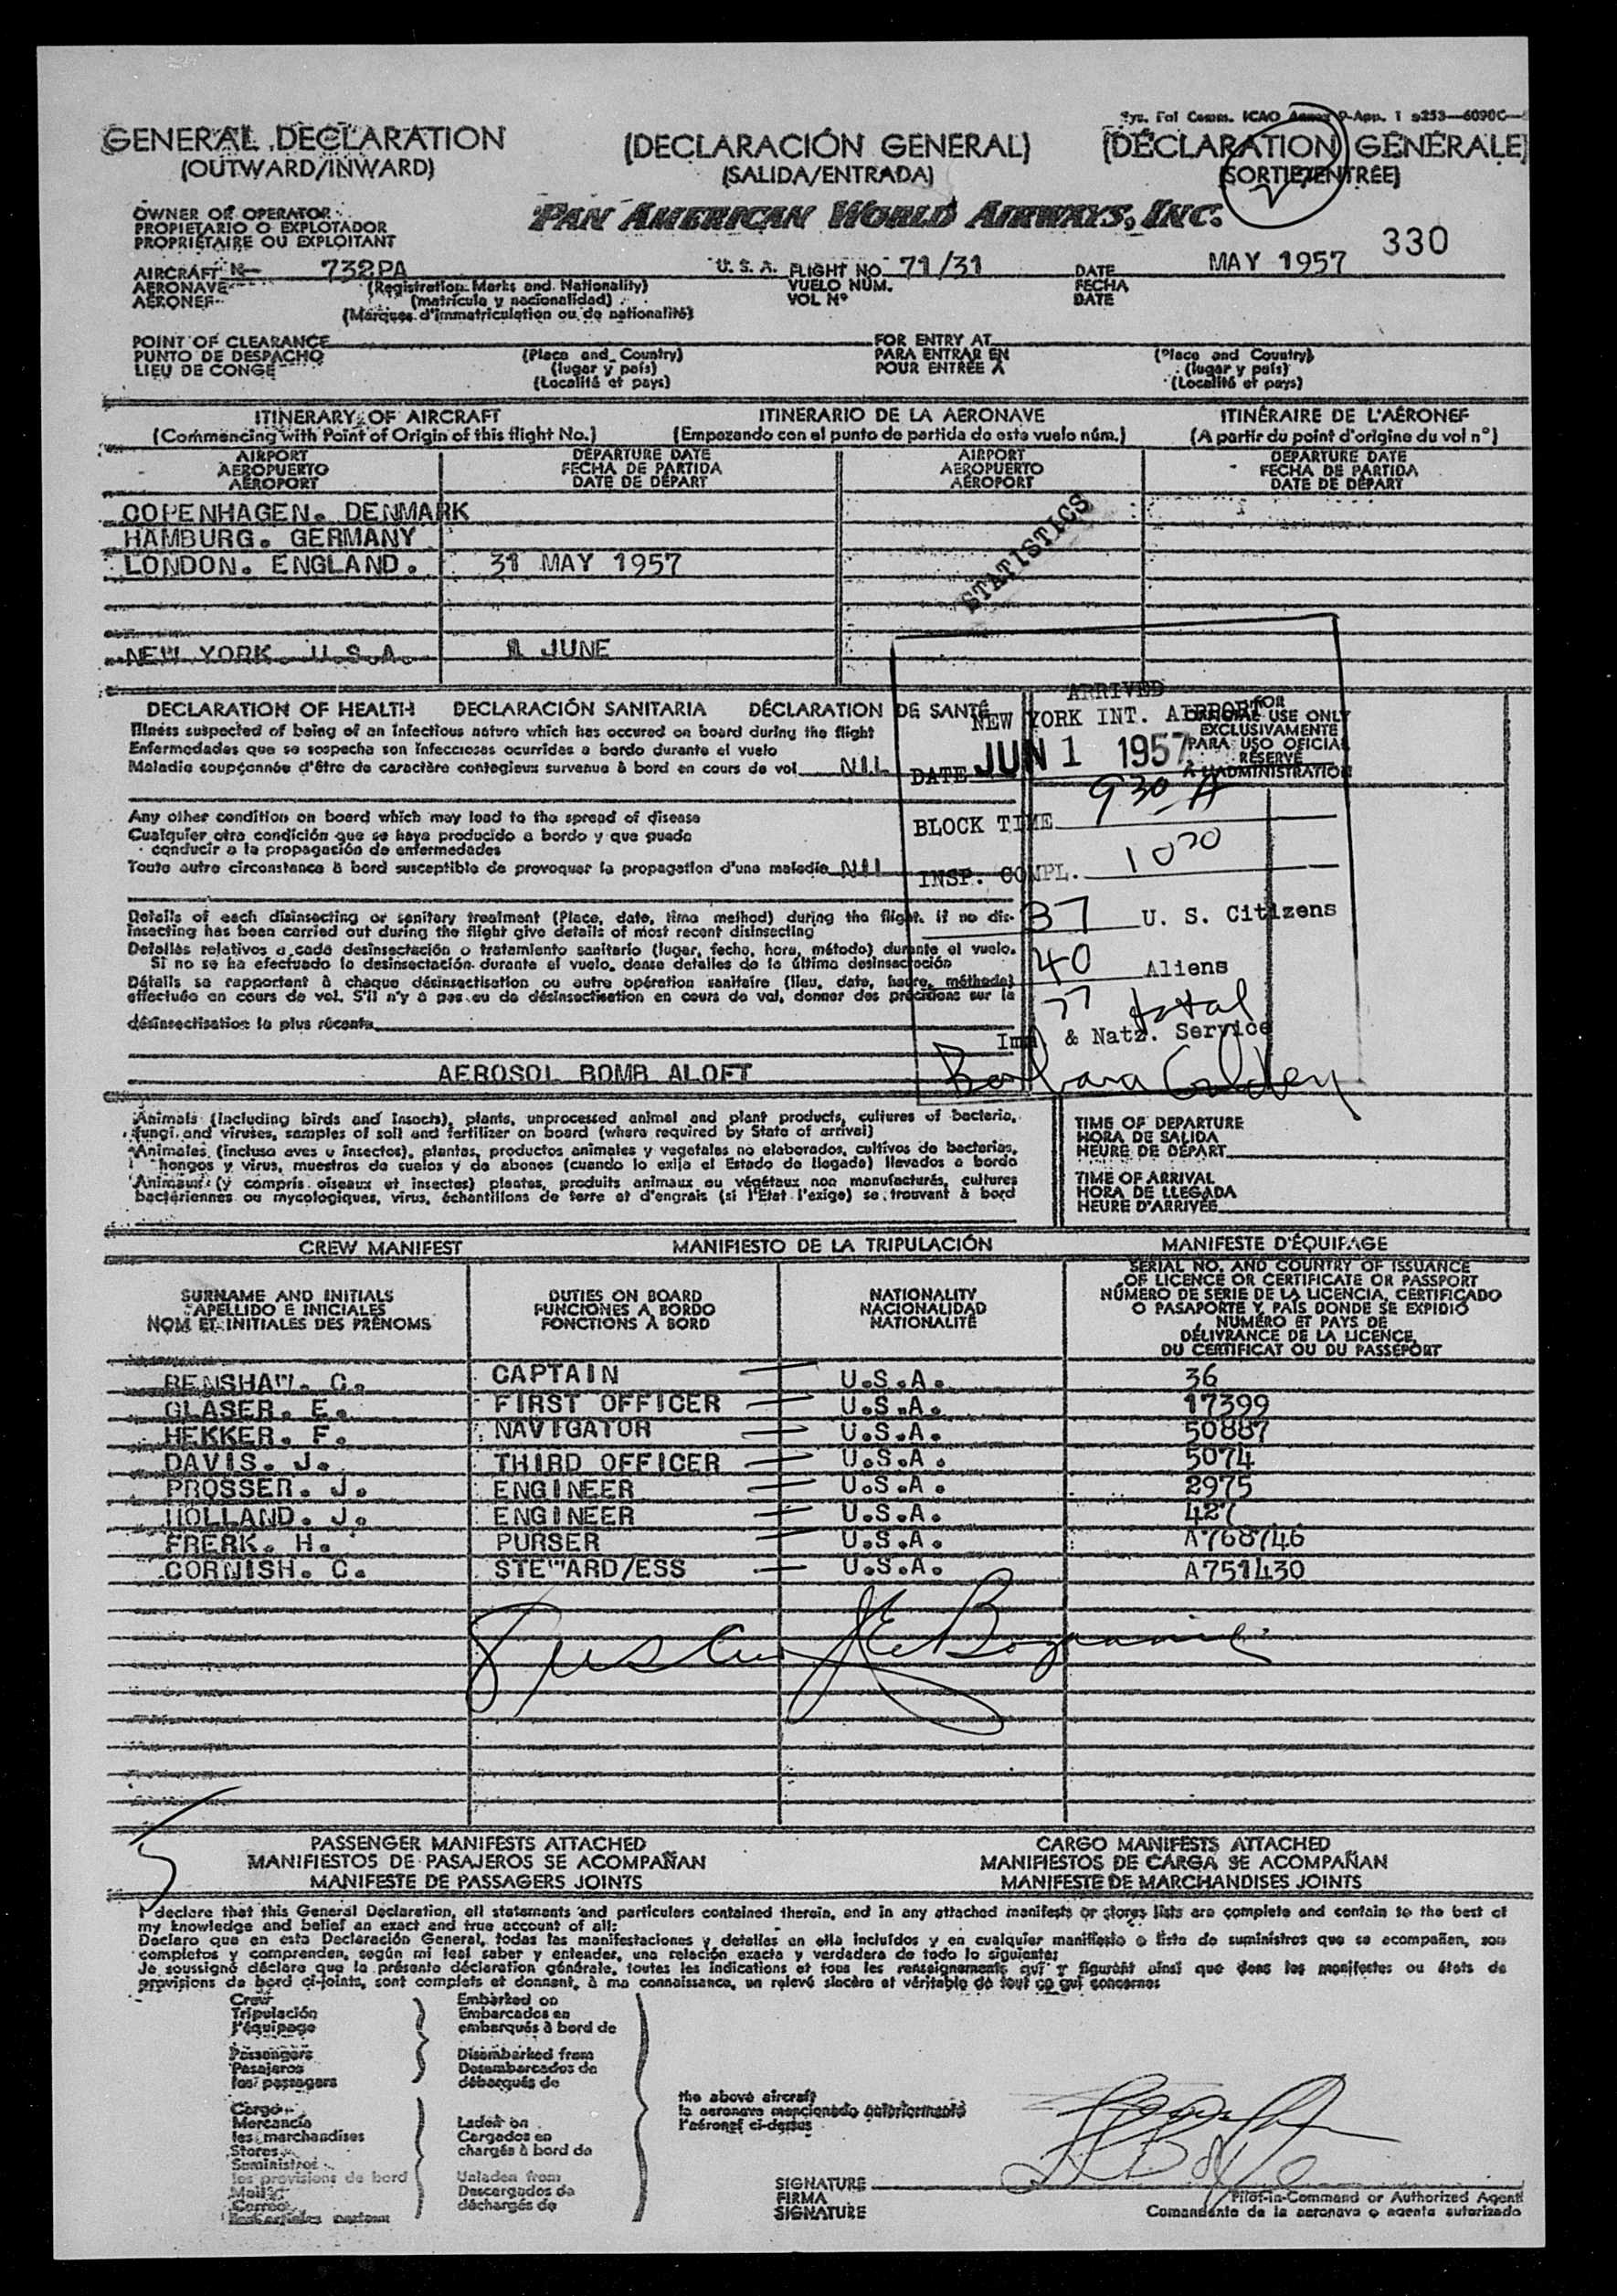 Sys. Fal Comm. ICAO Annex 9-App. 1 s253—6090C—
GENERAL DECLARATION
(OUTWARD/INWARD)
(DECLARACIÓN GENERAL)
(SALIDA/ENTRADA)
(DÉCLARATION GÉNÉRALE)
(SORTIE/ENTRÉE)
OWNER OR OPERATOR
PROPIETARIO O EXPLOTADOR
PROPRIÉTAIRE OU EXPLOITANT
PAN AMERICAN WORLD AIRWAYS, INC.
330
AIRCRAFT N— 732PA U. S. A. FLIGHT NO 71/31 DATE MAY 1957
AERONAVE (Registration Marks and Nationality) VUELO NÚM. FECHA
AÉRONEF (matrícula y nacionalidad) VOL Nº DATE
(Marques d'immatriculation ou de nationalité)
POINT OF CLEARANCE FOR ENTRY AT
PUNTO DE DESPACHO (Place and Country) PARA ENTRAR EN (Place and Country)
LIEU DE CONGÉ (lugar y país) POUR ENTRÉE A (lugar y país)
(Localité et pays) (Localité et pays)
ITINERARY OF AIRCRAFT ITINERARIO DE LA AERONAVE ITINÉRAIRE DE L'AÉRONEF
(Commencing with Point of Origin of this flight No.) (Empezando con el punto de partida de este vuelo núm.) (A partir du point d'origine du vol nº)
AIRPORT DEPARTURE DATE AIRPORT DEPARTURE DATE
AEROPUERTO FECHA DE PARTIDA AEROPUERTO FECHA DE PARTIDA
AÉROPORT DATE DE DÉPART AÉROPORT DATE DE DÉPART
COPENHAGEN. DENMARK
HAMBURG. GERMANY
LONDON. ENGLAND. 31 MAY 1957
STATISTICS
NEW YORK. U.S.A. 1 JUNE
DECLARATION OF HEALTH DECLARACIÓN SANITARIA DÉCLARATION DE SANTÉ
Illness suspected of being of an infectious nature which has occured on board during the flight
Enfermedades que se sospecha son infecciosas ocurridas a bordo durante el vuelo
Maladie soupçonnée d'être de caractère contagieux survenue à bord en cours de vol NIL
Any other condition on board which may lead to the spread of disease
Cualquier otra condición que se haya producido a bordo y que pueda
conducir a la propagación de enfermedades
Toute autre circonstance à bord susceptible de provoquer la propagation d'une maladie NIL
Details of each disinsecting or sanitary treatment (Place, date, time method) during the flight. If no dis-
insecting has been carried out during the flight give details of most recent disinsecting
Detalles relativos a cada desinsectación o tratamiento sanitario (lugar, fecha, hora, método) durante el vuelo.
Si no se ha efectuado la desinsectación durante el vuelo, dense detalles de la última desinsectación
Détails se rapportant à chaque désinsectisation ou autre opération sanitaire (lieu, date, heure, méthode)
effectuée en cours de vol. S'il n'y a pas eu de désinsectisation en cours de vol, donner des précisions sur la
désinsectisation la plus récente
AEROSOL BOMB ALOFT
FOR
OFFICIAL USE ONLY
EXCLUSIVAMENTE
PARA USO OFICIAL
RESERVÉ
A L'ADMINISTRATION
ARRIVED
NEW YORK INT. AIRPORT
DATE JUN 1 1957
BLOCK TIME 930 A
INSP. COMPL. 1020
37 U. S. Citizens
40 Aliens
77 total
Imm. & Natz. Service
Barbara
Animals (including birds and insects), plants, unprocessed animal and plant products, cultures of bacteria,
fungi and viruses, samples of soil and fertilizer on board (where required by State of arrival)
Animales (incluso aves u insectos), plantas, productos animales y vegetales no elaborados, cultivos de bacterias,
hongos y virus, muestras de suelos y de abonos (cuando lo exija el Estado de llegada) llevados a bordo
Animaux (y compris oiseaux et insectes) plantes, produits animaux ou végétaux non manufacturés, cultures
bactériennes ou mycologiques, virus, échantillons de terre et d'engrais (si l'Etat l'exige) se trouvant à bord
TIME OF DEPARTURE
HORA DE SALIDA
HEURE DE DÉPART
TIME OF ARRIVAL
HORA DE LLEGADA
HEURE D'ARRIVÉE
CREW MANIFEST MANIFIESTO DE LA TRIPULACIÓN MANIFESTE D'ÉQUIPAGE
SURNAME AND INITIALS
APELLIDO E INICIALES
NOM ET INITIALES DES PRÉNOMS
DUTIES ON BOARD
FUNCIONES A BORDO
FONCTIONS À BORD
NATIONALITY
NACIONALIDAD
NATIONALITÉ
SERIAL NO. AND COUNTRY OF ISSUANCE
OF LICENCE OR CERTIFICATE OR PASSPORT
NÚMERO DE SERIE DE LA LICENCIA, CERTIFICADO
O PASAPORTE Y PAÍS DONDE SE EXPIDIÓ
NUMÉRO ET PAYS DE
DÉLIVRANCE DE LA LICENCE,
DU CERTIFICAT OU DU PASSEPORT
RENSHAW. C. CAPTAIN U.S.A. 36
GLASER. E. FIRST OFFICER U.S.A. 17399
HEKKER. F. NAVIGATOR U.S.A. 50887
DAVIS. J. THIRD OFFICER U.S.A. 5074
PROSSER. J. ENGINEER U.S.A. 2975
HOLLAND. J. ENGINEER U.S.A. 427
FRERK. H. PURSER U.S.A. A768746
CORNISH. C. STEWARD/ESS U.S.A. A751430
5
PASSENGER MANIFESTS ATTACHED CARGO MANIFESTS ATTACHED
MANIFIESTOS DE PASAJEROS SE ACOMPAÑAN MANIFIESTOS DE CARGA SE ACOMPAÑAN
MANIFESTE DE PASSAGERS JOINTS MANIFESTE DE MARCHANDISES JOINTS
I declare that this General Declaration, all statements and particulars contained therein, and in any attached manifests or stores lists are complete and contain to the best of
my knowledge and belief an exact and true account of all:
Declaro que en esta Declaración General, todas las manifestaciones y detalles en ella incluídos y en cualquier manifiesto o lista de suministros que se acompañen, son
completos y comprenden, según mi leal saber y entender, una relación exacta y verdadera de todo lo siguiente:
Je soussigné déclare que la présente déclaration générale, toutes les indications et tous les renseignements qui y figurent ainsi que dans les manifestes ou états de
provisions de bord ci-joints, sont complets et donnent, à ma connaissance, un relevé sincère et véritable de tout ce qui concerne:
Crew Embarked on
Tripulación Embarcados en
l'équipage embarqués à bord de
Passengers Disembarked from
Pasajeros Desembarcados de
les passagers débarqués de
Cargo
Mercancía Laden on
les marchandises Cargados en
Stores chargés à bord de
Suministros
les provisions de bord Unladen from
Mail Descargados de
Correo déchargés de
the above aircraft
la aeronave mencionada anteriormente
l'aéronef ci-dessus
SIGNATURE
FIRMA
SIGNATURE
Pilot-in-Command or Authorized Agent
Comandante de la aeronave o agente autorizado